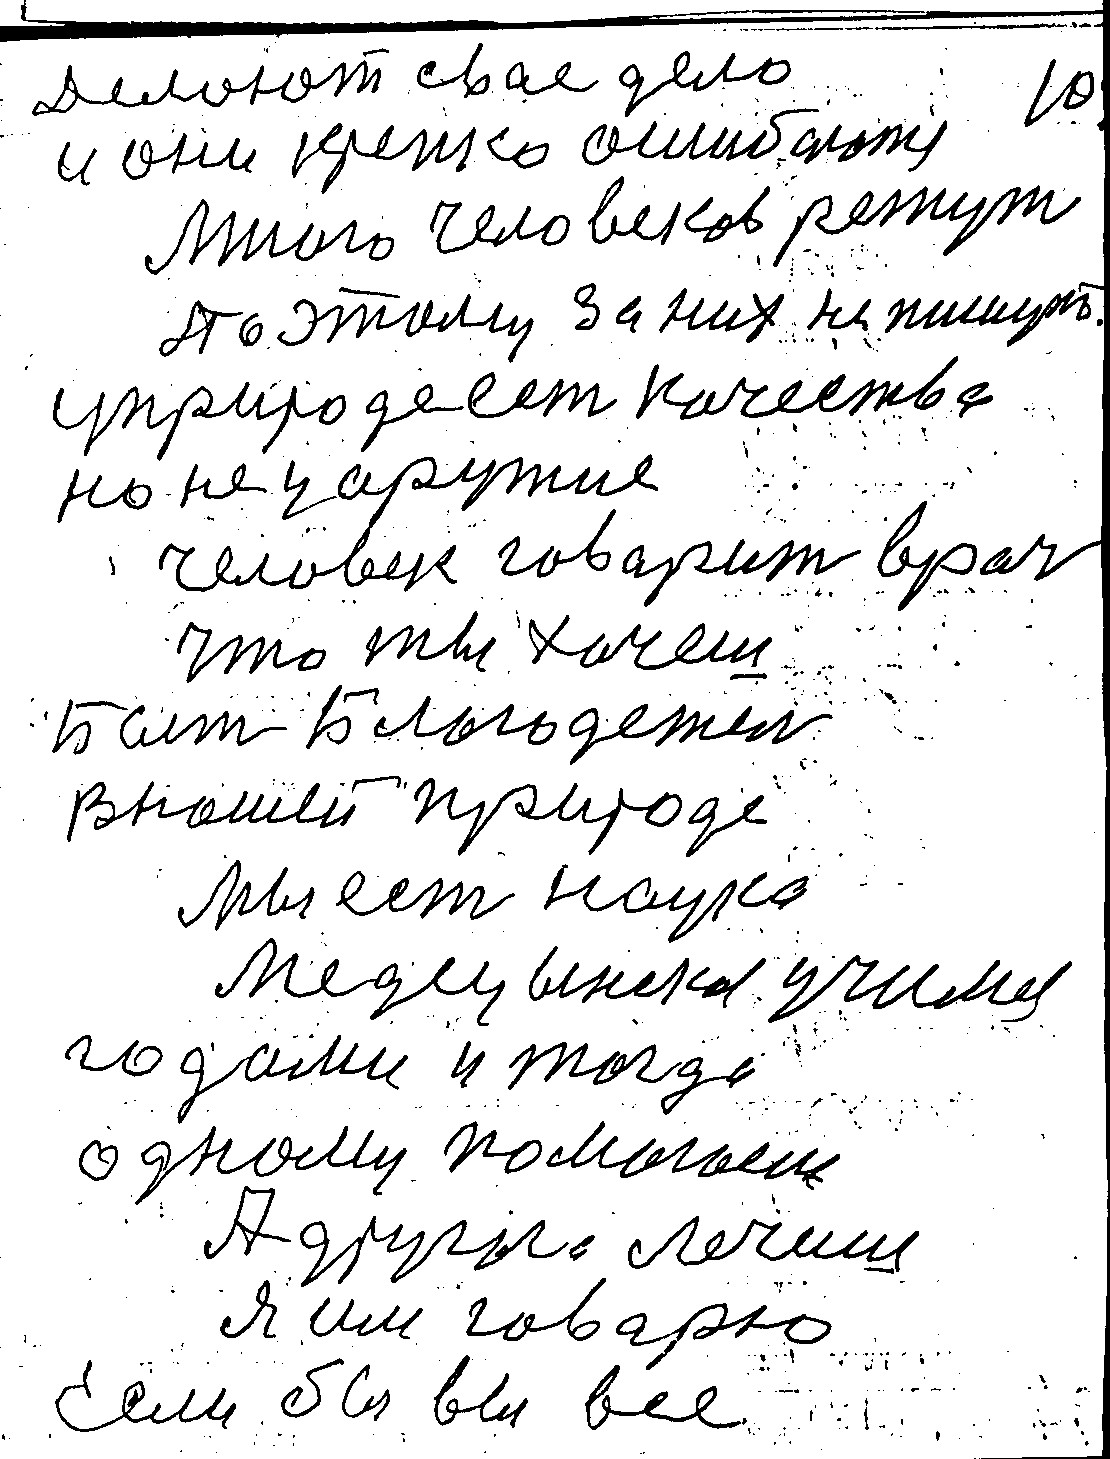 Делоют свае дело 10
и они крепко ошибаются
Много человеков режут
Поэтому за них не пишут.
уприроде ест качества
но не уаружие
человек говарит врач
что ты хочеш
Бит Благодетел
внашей природе
Мы ест наука
Медецынска учимся
годами и тогда
одному помогаеш
А другога лечиш
Я им говарю
Если бы вы все